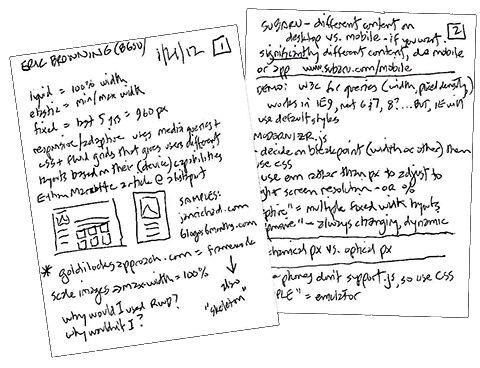 ERIC BROWNING (BGSU) 1/21/12 1
liquid = 100% width
elastic = min/max width
fixed = last 5 yrs = 960 px
responsive/adaptive uses media queries +
css + fluid grids that gives users different
layouts based on their (device) capabilities
Ethan Marcotte article @ alistapart
SAMPLES:
* goldilocksapproach.com = framework
scale images → max width = 100%
also
"skeleton"
why would I use RWD?
why wouldn't I?
SUBARU - different content on 2
desktop vs. mobile - if you want
significantly different content, do mobile
or app www.subaru.com/mobile
DEMO: W3C for queries (width, pixel density)
works in IE9, not 6, 7, 8? ... BUT, IE will
use default styles
MODERNIZR.js
decide on breakpoint (width or other) then
use css
use em rather than px to adjust to
screen resolution - or %
= multiple fixed width layouts
- always changing, dynamic
px vs. optical px
phones don't support js, so use CSS
= emulator